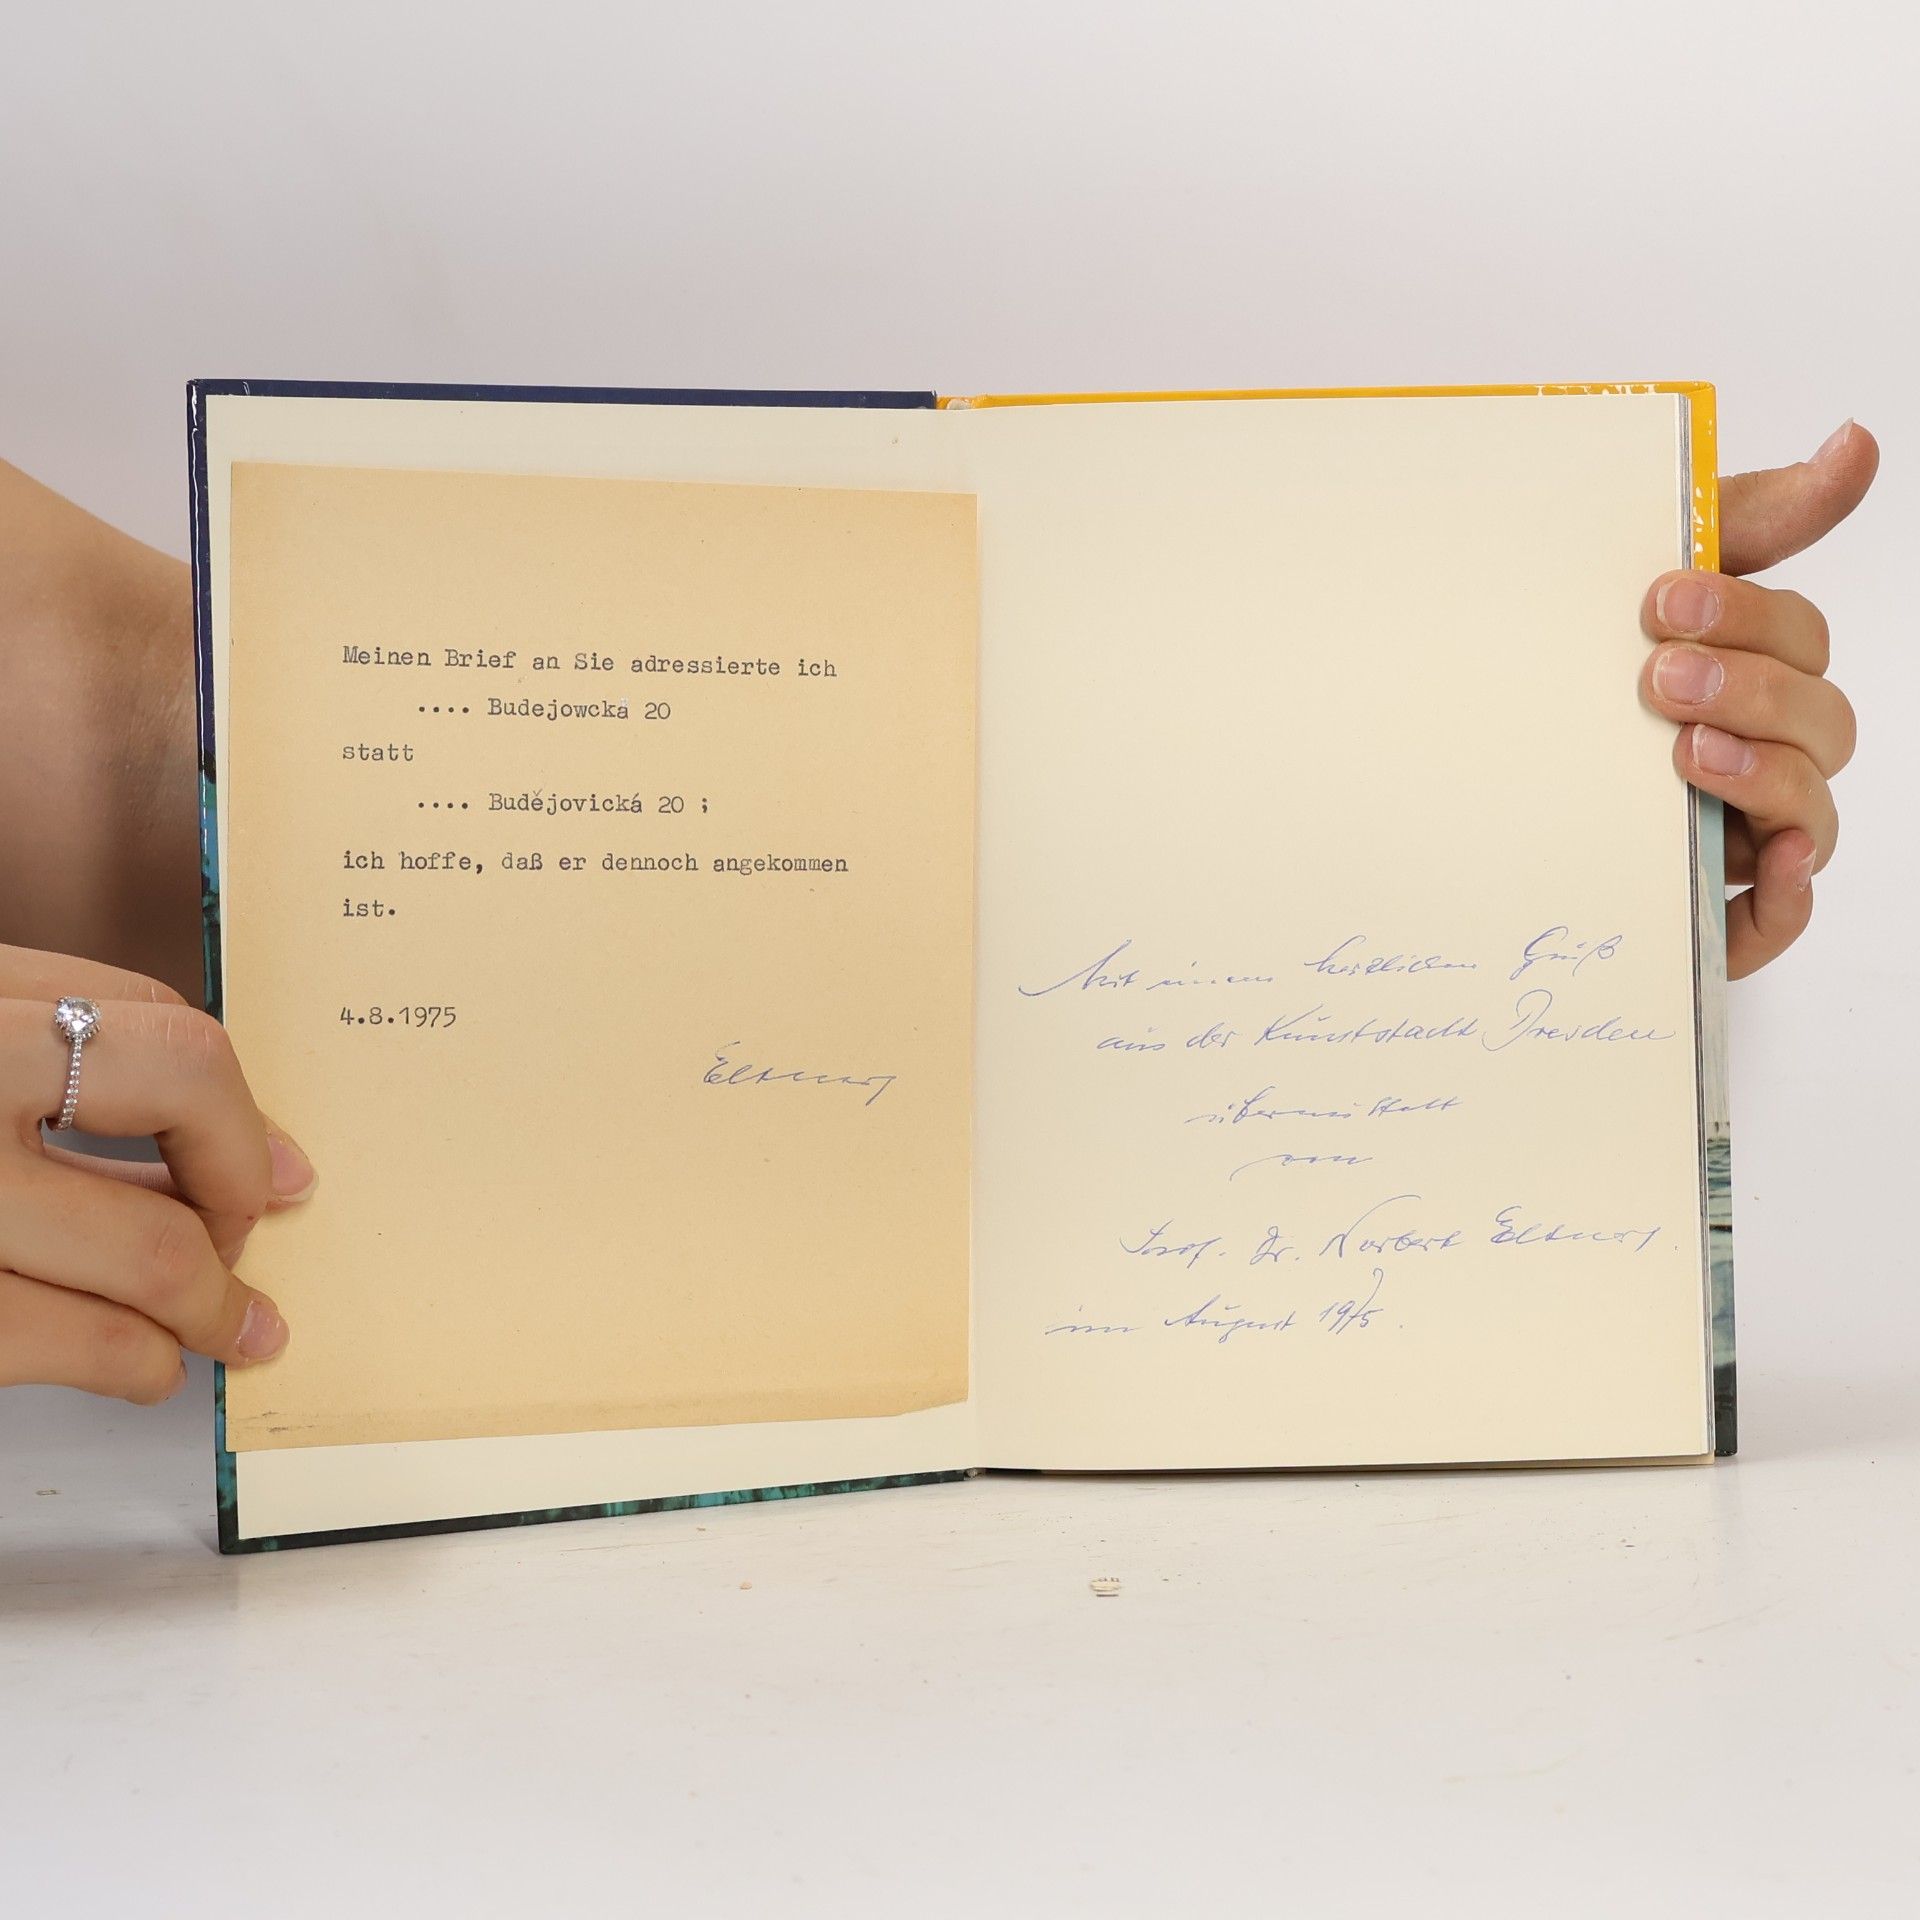 Meinen Brief an Sie adressierte ich
.... Budejowcká 20
statt
.... Budějovická 20 ;
ich hoffe, daß er dennoch angekommen
ist.
4.8.1975
Mit einem herzlichen Gruß
aus der Kunststadt Dresden
übermittelt
von
Prof. Dr. Norbert
im August 1975.